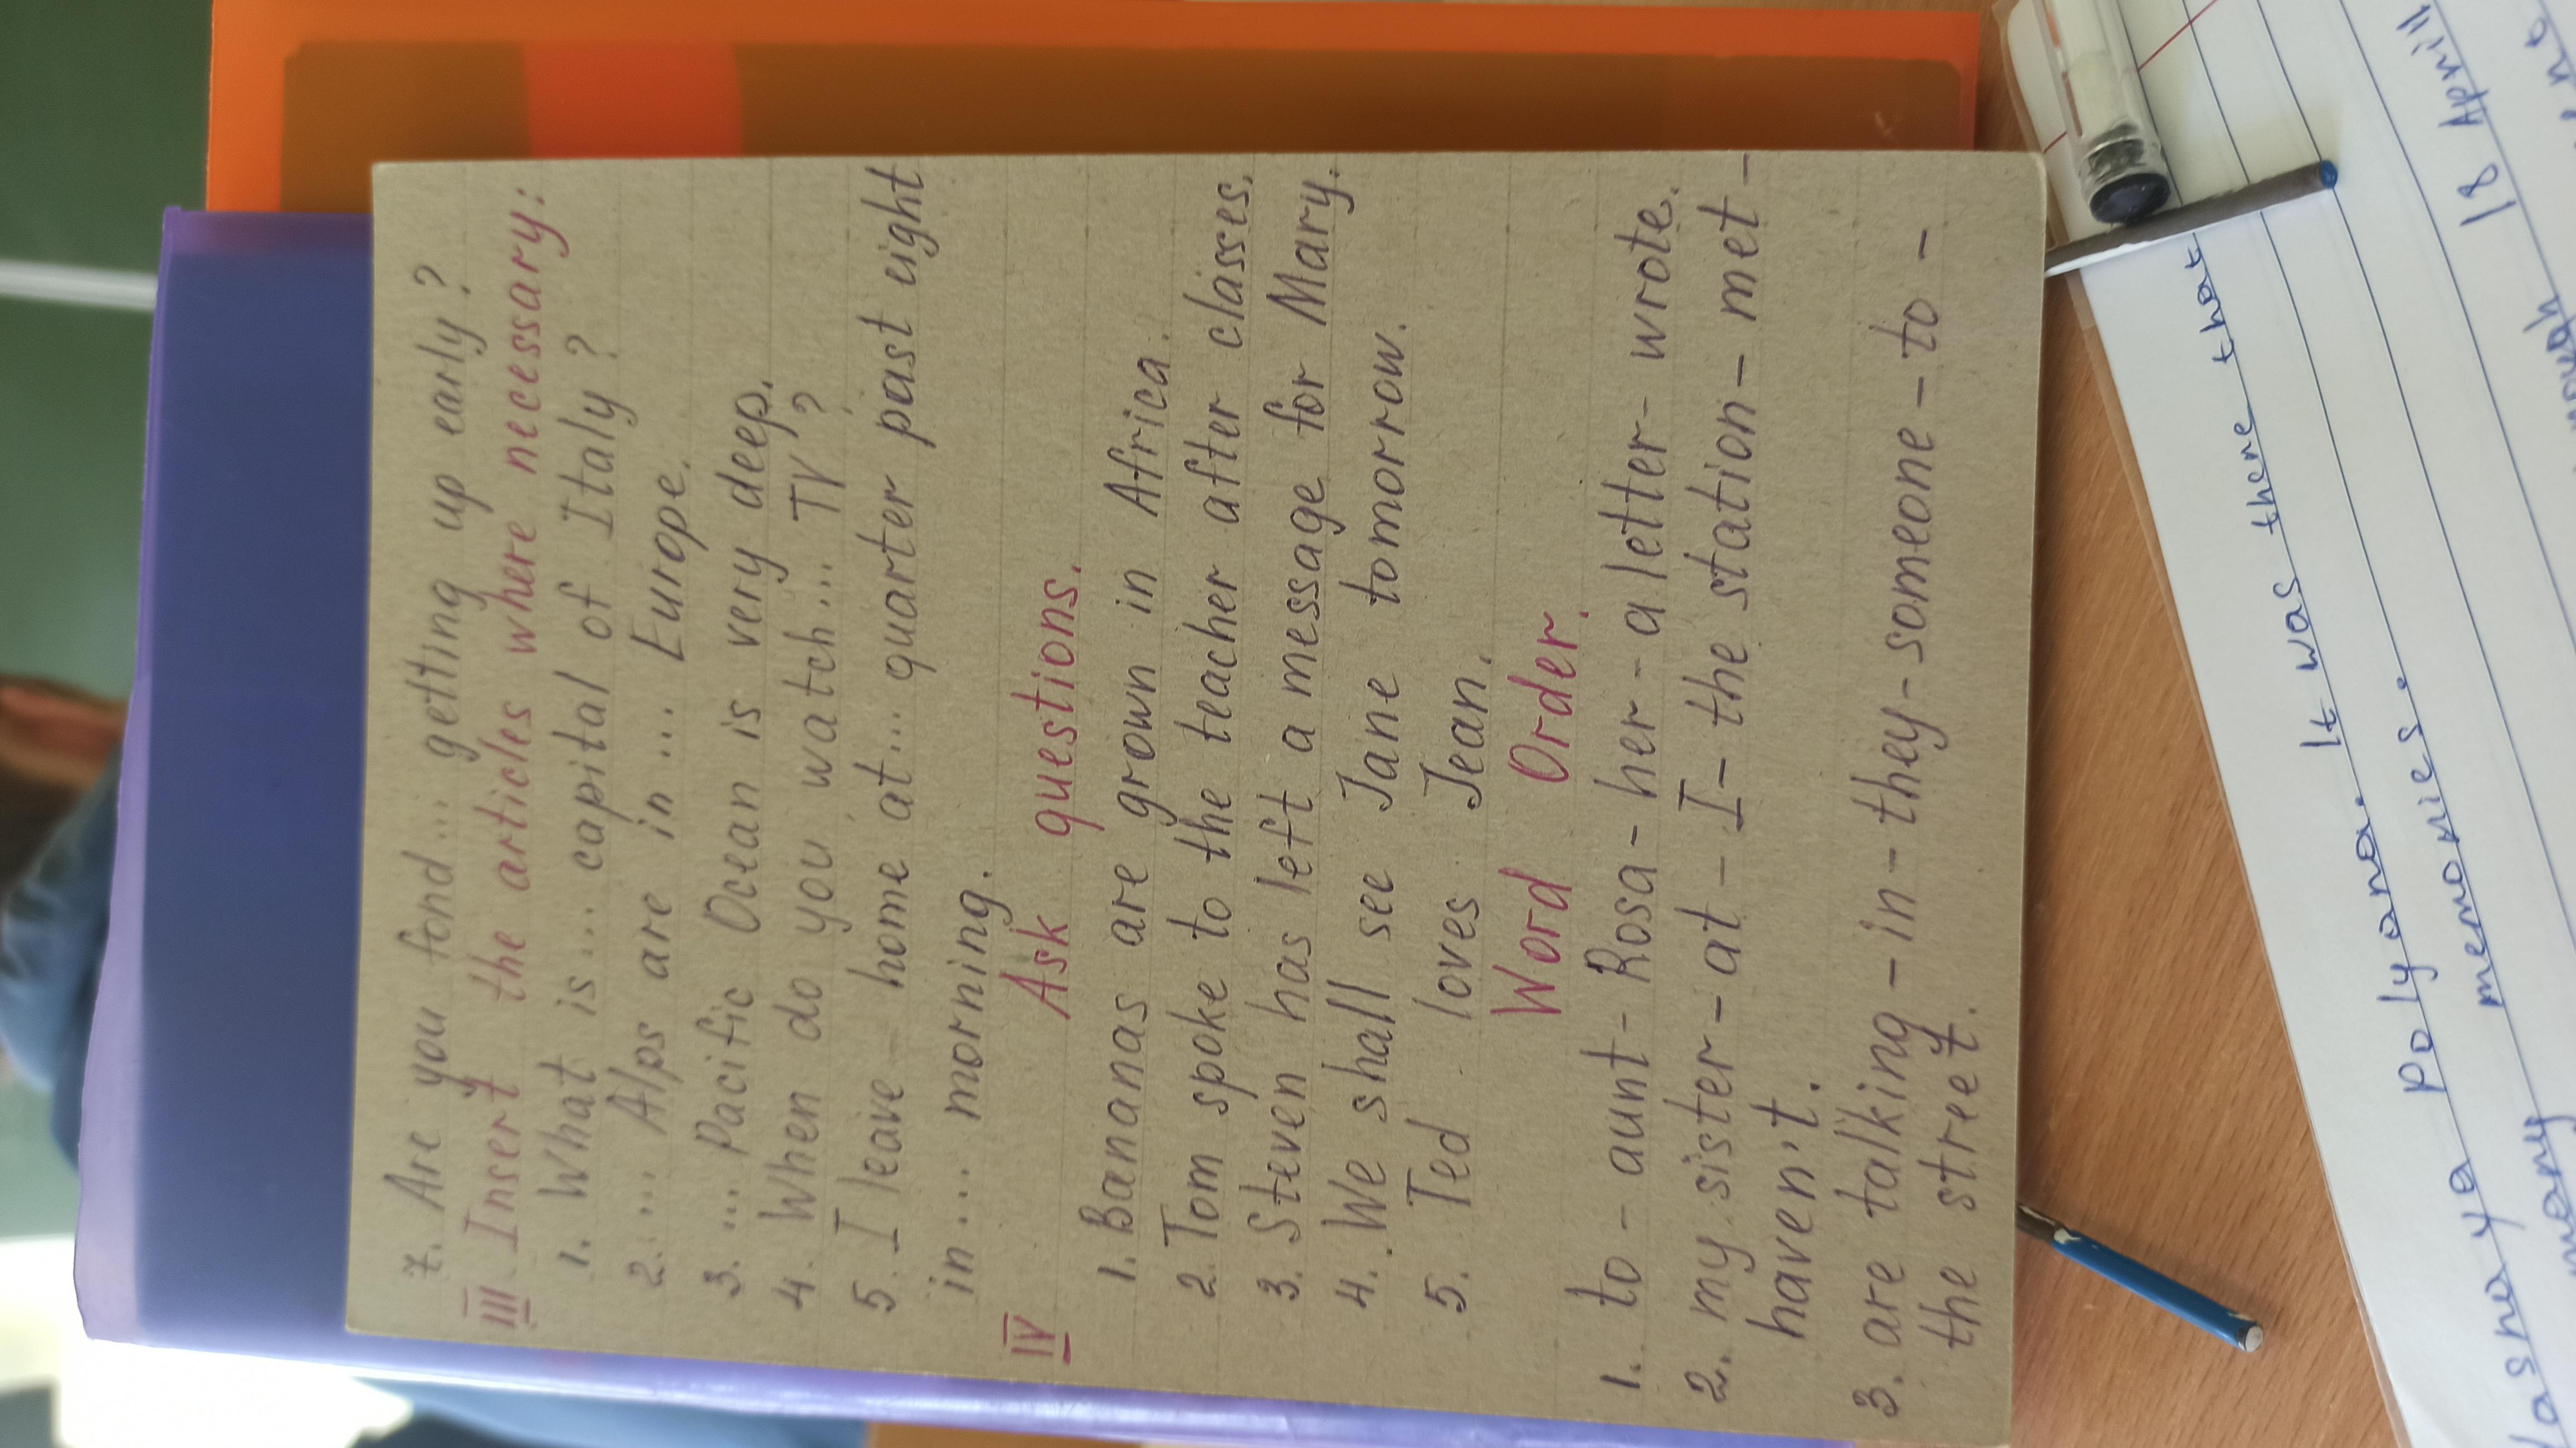 7. Are you fond... getting up early?
III Insert the articles where necessary:
1. What is... capital of Italy?
2.... Alps are in... Europe.
3.... Pacific Ocean is very deep.
4. When do you watch... TV?
5. I leave home at... quarter past eight
in... morning.
IV Ask questions.
1. Bananas are grown in Africa.
2. Tom spoke to the teacher after classes.
3. Steven has left a message for Mary.
4. We shall see Jane tomorrow.
5. Ted loves Jean.
Word Order.
1. to - aunt - Rosa - her - a letter - wrote.
2. my sister - at - I - the station - met -
haven't.
3. are talking - in - they - someone - to -
the street.
18 April
It was there that
memories.